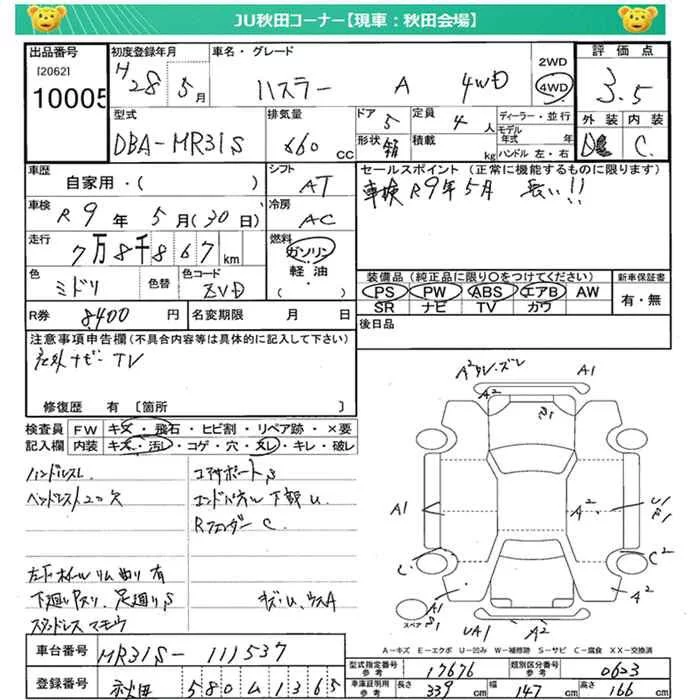 JU秋田コーナー【現車：秋田会場】
出品番号
[2062]
10005
初度登録年月
H28 5月
車名・グレード
ハスラー A 4WD
2WD
4WD
評価点
3.5
型式
DBA-MR31S
排気量
660 CC
ドア 5
形状 箱
定員 4人
積載 kg
ディーラー・並行
モデル年式 年
ハンドル 左・右
外装
内装
C
車歴
自家用・( )
シフト
AT
セールスポイント (正常に機能するものに限ります)
車検 R9年5月 長い!!
車検 R9年5月(30日)
冷房
AC
走行
7万8千867km
燃料
ガソリン
軽油
( )
色
ミドリ
色替
色コード
ZVD
装備品(純正品に限り○をつけてください)
PS PW ABS エアB AW
SR ナビ TV カワ
新車保証書
有・無
R券 8,400円
名変期限 月 日
後日品
注意事項申告欄(不具合内容等は具体的に記入して下さい)
社外ナビ-TV
修復歴 有 [箇所 ]
検査員記入欄
FW キズ・飛石・ヒビ割・リペア跡・×要
内装 キズ・汚レ・コゲ・穴・スレ・キレ・破レ
ハンドルスレ
ヘッドレスト2コ欠
コアサポートS
エンドパネル下部U
RフェンダーC
左下ホイルリム曲り有
下廻りサビ、足廻りS
キズU、ウスA
スタッドレスマモウ
A²
A1
A²
S1
A1
A²
C
C²
A1
S1
A²
UA1
A²
スペア
A－キズ E－エクボ U－凹み W－補修跡 S－サビ C－腐食 XX－交換済
車台番号
MR31S-111537
登録番号
秋田 580 ム 1365
型式指定番号
参考
17676
類別区分番号
参考
0603
車庫証明用
参考
長さ
339cm
幅
147cm
高さ
166cm